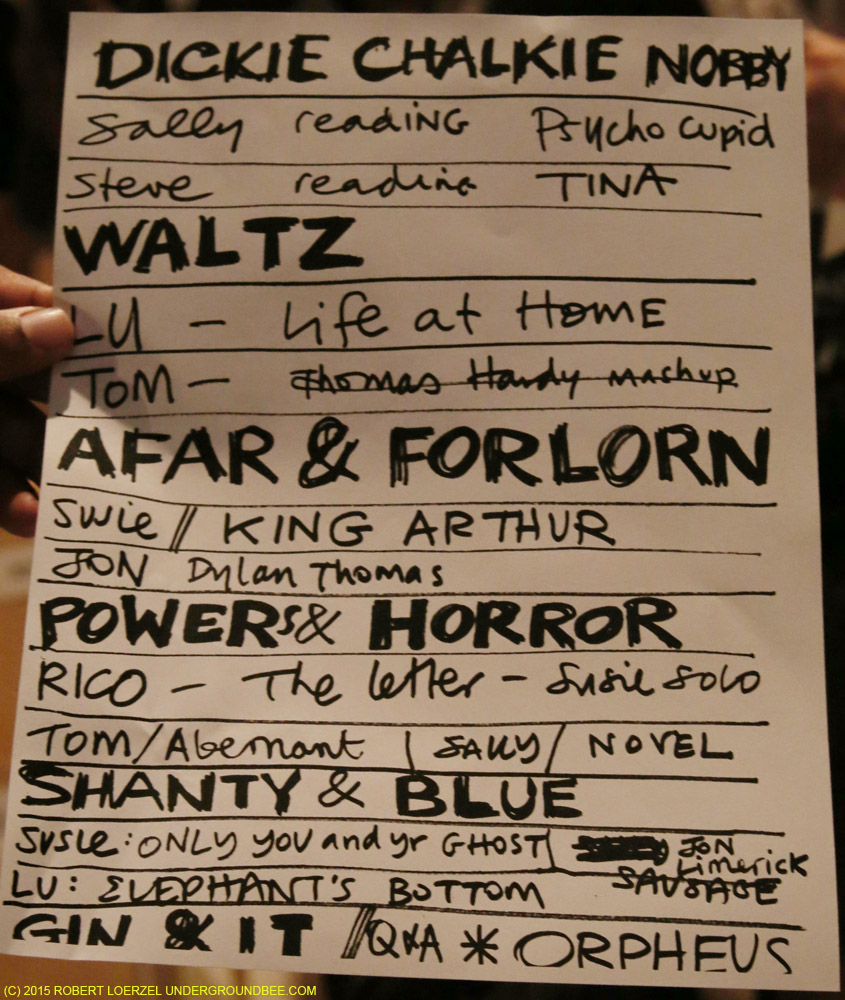 DICKIE CHALKIE NOBBY
Sally reading Psycho Cupid
Steve reading TINA
WALTZ
LU - Life at HOME
TOM - Thomas Hardy MASHUP
AFAR & FORLORN
SUSIE // KING ARTHUR
JON Dylan Thomas
POWERS & HORROR
RICO - The letter - Susie Solo
TOM/Abernant | SALLY/ NOVEL
SHANTY & BLUE
SUSIE: ONLY YOU and yr GHOST | JON
Limerick
LU: ELEPHANT'S BOTTOM SAUSAGE
GIN & IT // Q&A * ORPHEUS
(C) 2015 ROBERT LOERZEL UNDERGROUNDBEE.COM